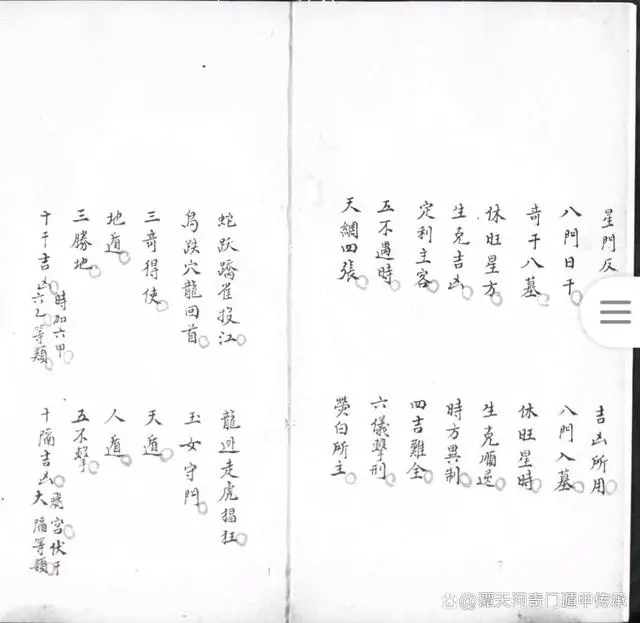 星門反
吉凶所用
八門日干
八門入墓
奇干八墓
休旺星時
休旺星方
生克順逆
生克吉凶
時方異制
定利主客
四吉難全
五不遇時
六儀擊刑
天網四張
熒白所主
蛇跃蹻雀投江
龍迯走虎猖狂
鳥跌穴龍回首
玉女守門
三奇得使
天遁
地遁
人遁
三勝地
五不擊
十干吉凶 時加六甲六乙等類
十隔吉凶 飛宮伏干大隔等類
@譚天河奇门遁甲传承